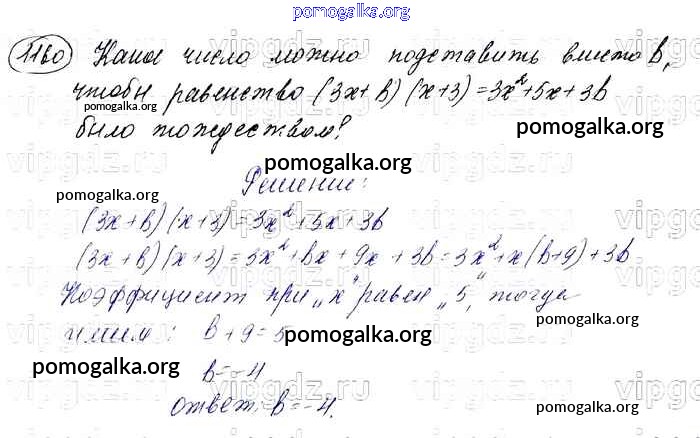 pomogalka.org
1160 Какое число можно подставить вместо b,
чтобы равенство (3x+b)(x+3)=3x²+5x+3b
pomogalka.org
pomogalka.org
было тождеством?
pomogalka.org
pomogalka.org
Решение:
(3x+b)(x+3)=3x²+5x+3b
(3x+b)(x+3)=3x²+bx+9x+3b=3x²+x(b+9)+3b
Коэффициент при „x" равен „5", тогда
имеем: b+9=5
pomogalka.org
pomogalka.org
b=-4
pomogalka.org
pomogalka.org
Ответ: b=-4.
pomogalka.org
vipgdz.ru